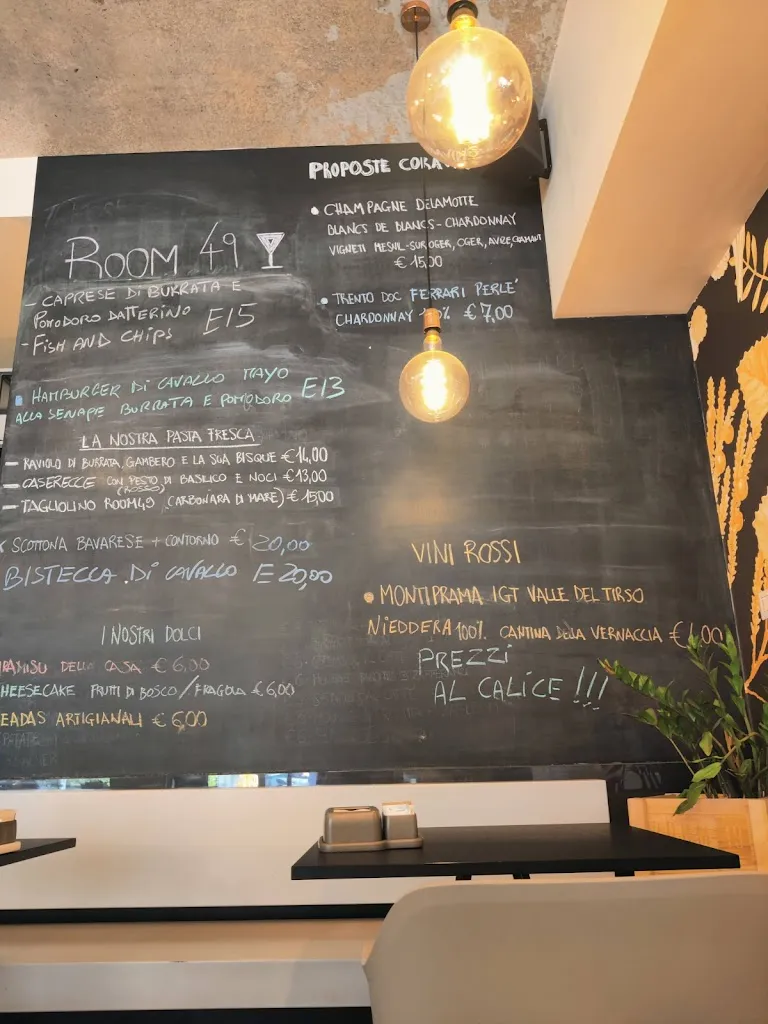 ROOM 49
- CAPRESE DI BURRATA E
POMODORO DATTERINO
- FISH AND CHIPS E15
HAMBURGER DI CAVALLO MAYO
ALLA SENAPE BURRATA E POMODORO E13
LA NOSTRA PASTA FRESCA
- RAVIOLO DI BURRATA, GAMBERO E LA SUA BISQUE € 14,00
- CASERECCE CON PESTO DI BASILICO E NOCI € 13,00
(ROSSO)
- TAGLIOLINO ROOM49 (CARBONARA DI MARE) € 15,00
SCOTTONA BAVARESE + CONTORNO € 20,00
BISTECCA DI CAVALLO E 20,00
I NOSTRI DOLCI
RAMISU DELLA CASA € 6,00
HEESECAKE FRUTTI DI BOSCO / FRAGOLA € 6,00
EADAS ARTIGIANALI € 6,00
PROPOSTE
• CHAMPAGNE DELAMOTTE
BLANCS DE BLANCS - CHARDONNAY
VIGNETI MESNIL-SUR-OGER, OGER, AVIZE, CRAMANT
€ 15,00
• TRENTO DOC FERRARI PERLE'
CHARDONNAY € 7,00
VINI ROSSI
• MONTIPRAMA IGT VALLE DEL TIRSO
NIEDDERA 100% CANTINA DELLA VERNACCIA
PREZZI
AL CALICE!!!